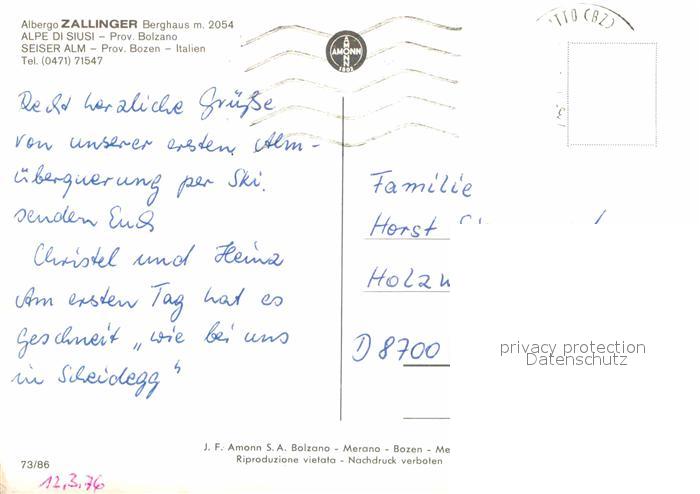 Albergo ZALLINGER Berghaus m. 2054
ALPE DI SIUSI – Prov. Bolzano
SEISER ALM – Prov. Bozen – Italien
Tel. (0471) 71547
AMONN
AMONN
1802
TTO (BZ)
Recht herzliche Grüße
von unserer ersten Alm-
überquerung per Ski.
senden Euch
Christel und Heinz
Am ersten Tag hat es
geschneit „wie bei uns
in Scheidegg"
Familie
Horst
Holzw
D 8700
privacy protection
Datenschutz
J. F. Amonn S.A. Bolzano - Merano - Bozen - Me
Riproduzione vietata - Nachdruck verboten
73/86
12.3.76